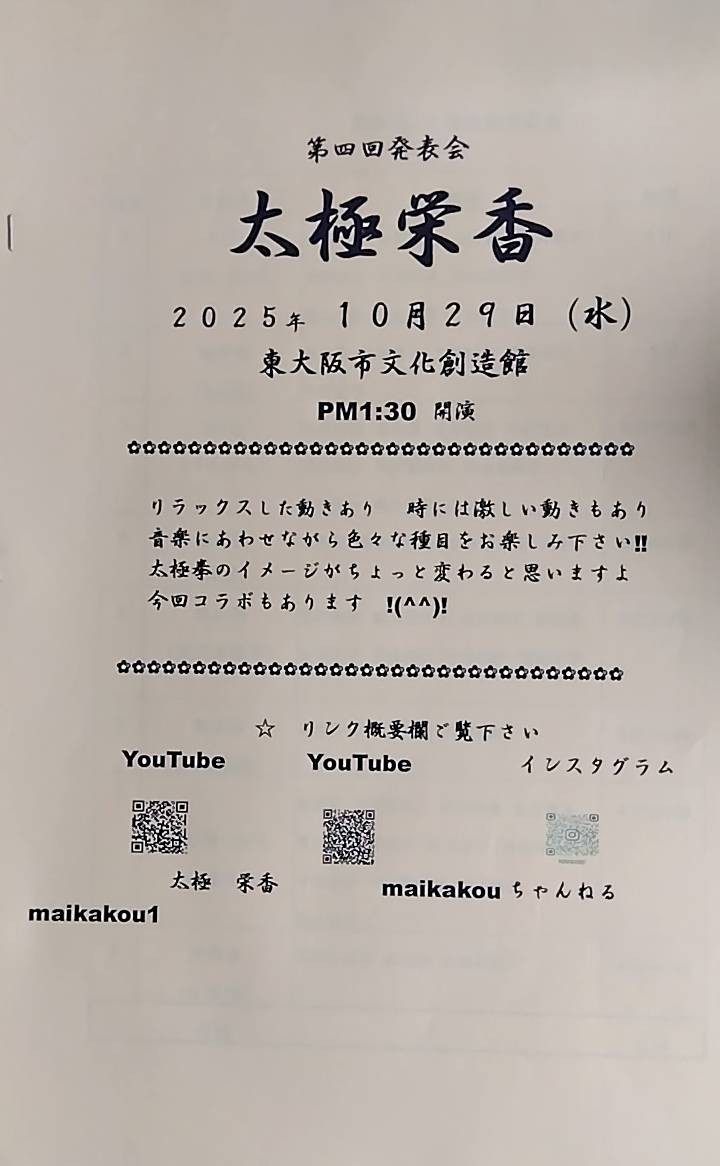 第四回発表会
太極栄香
２０２５年　１０月２９日（水）
東大阪市文化創造館
PM1:30　開演
✿✿✿✿✿✿✿✿✿✿✿✿✿✿✿✿✿✿✿✿✿✿✿✿✿✿✿✿✿✿✿✿✿✿
リラックスした動きあり　時には激しい動きもあり
音楽にあわせながら色々な種目をお楽しみ下さい!!
太極拳のイメージがちょっと変わると思いますよ
今回コラボもあります　!(^^)!
✿✿✿✿✿✿✿✿✿✿✿✿✿✿✿✿✿✿✿✿✿✿✿✿✿✿✿✿✿✿✿✿✿✿
☆　リンク概要欄ご覧下さい
YouTube　YouTube　インスタグラム
太極　栄香　maikakouちゃんねる
maikakou1